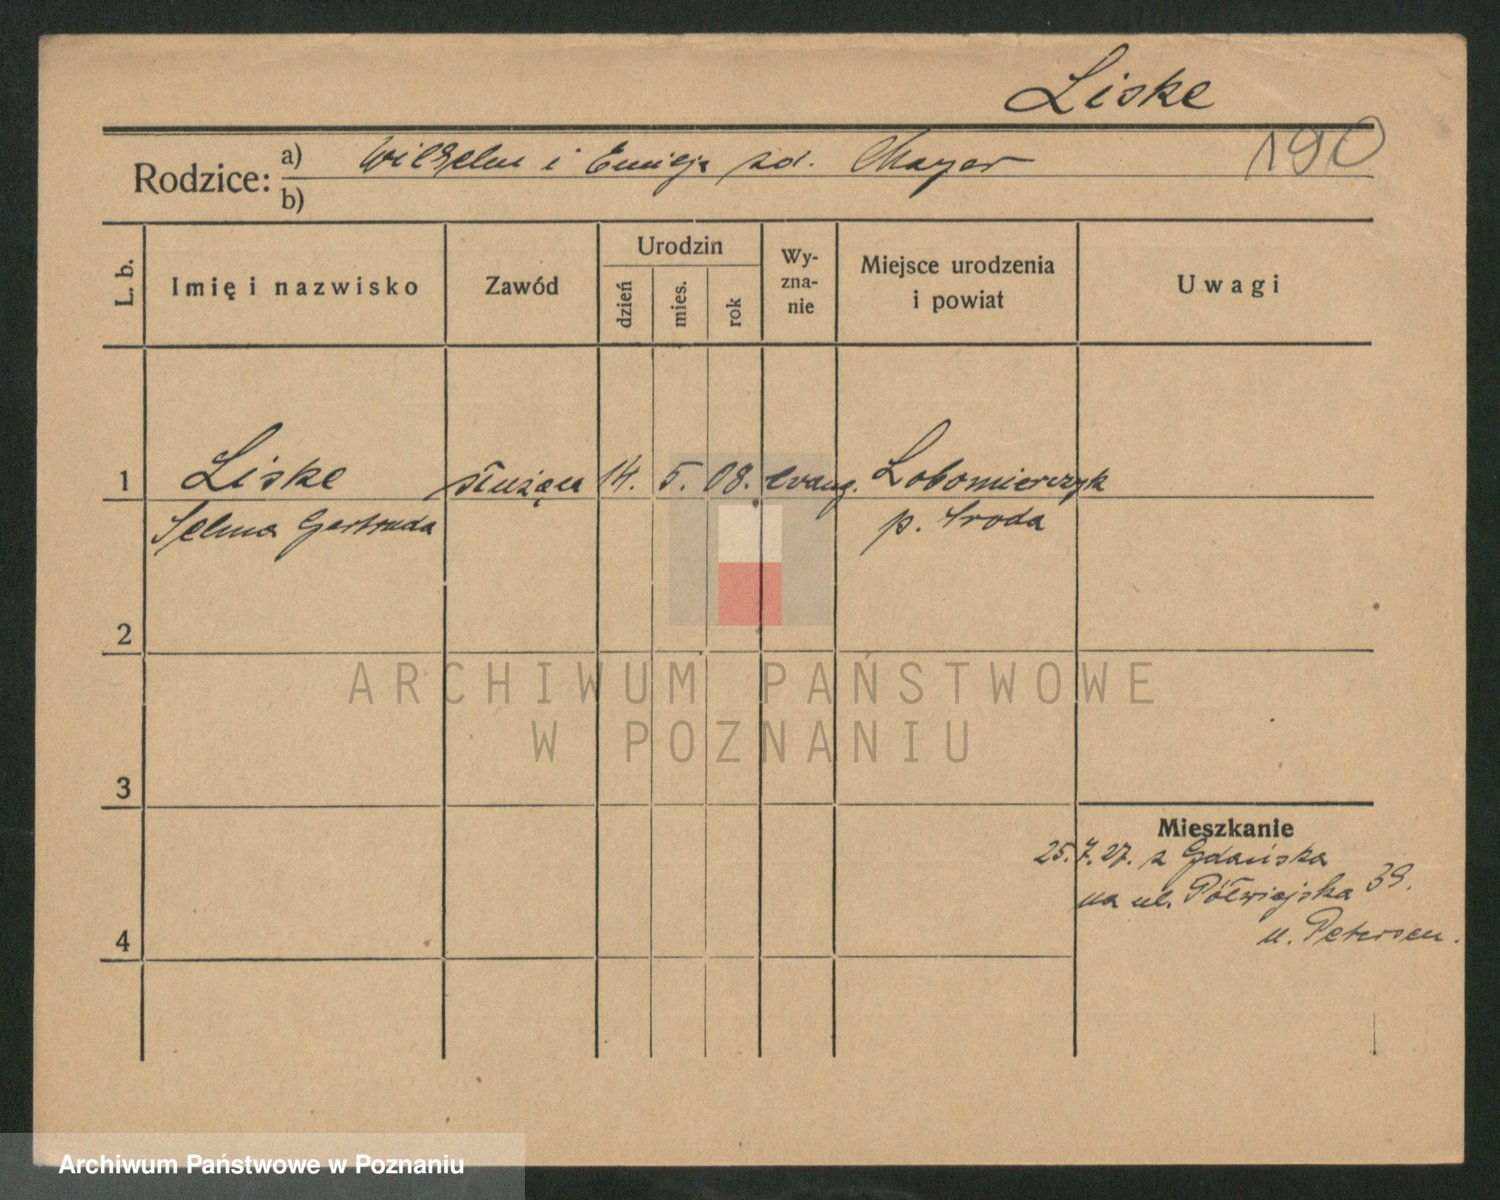 Liske
190
Rodzice: a) Wilhelm i Emilja zd. Mayer
b)
L. b. Imię i nazwisko Zawód Urodzin dzień mies. rok Wy-zna-nie Miejsce urodzenia i powiat Uwagi
1 Liske służąca 14. 5. 08. evang. Lobomierczyk
Selma Gertruda p. Środa
2
3
4
Mieszkanie
25.7.27. z Gdańska
na ul. Półwiejska 39.
u. Petersen.
ARCHIWUM PAŃSTWOWE
W POZNANIU
Archiwum Państwowe w Poznaniu